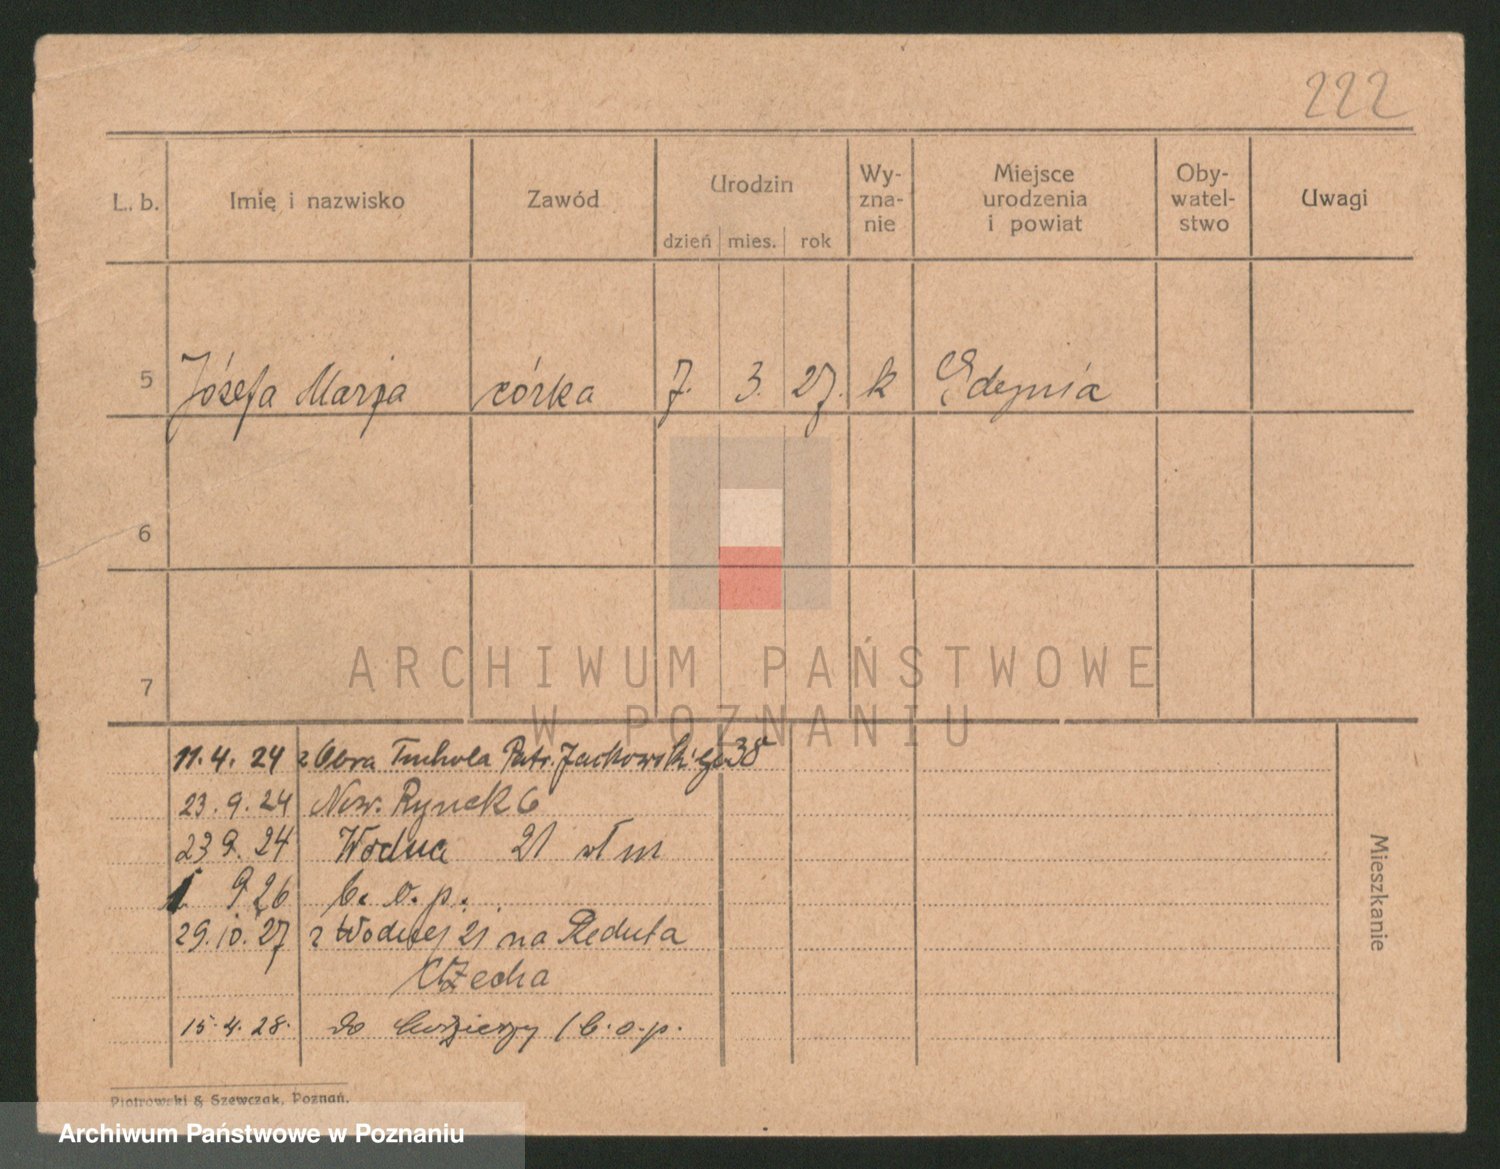 222
L. b. Imię i nazwisko Zawód Urodzin Wy-zna-nie Miejsce urodzenia i powiat Oby-watel-stwo Uwagi
dzień mies. rok
5 Józefa Marja córka 7. 3. 27. k Gdynia
6
7
ARCHIWUM PAŃSTWOWE
W POZNANIU
11.4.24 z Obra Tuchola Patr. Jackowskiego 38
23.9.24 Now. Rynek 6
23 9. 24 Wodna 21 wł m
1. 9 26 b. o. p.
29.10.27 z Wodnej 21 na Reduta
Czecha
15.4.28. do / b.o.p.
Mieszkanie
Piotrowski & Szewczak, Poznań.
Archiwum Państwowe w Poznaniu